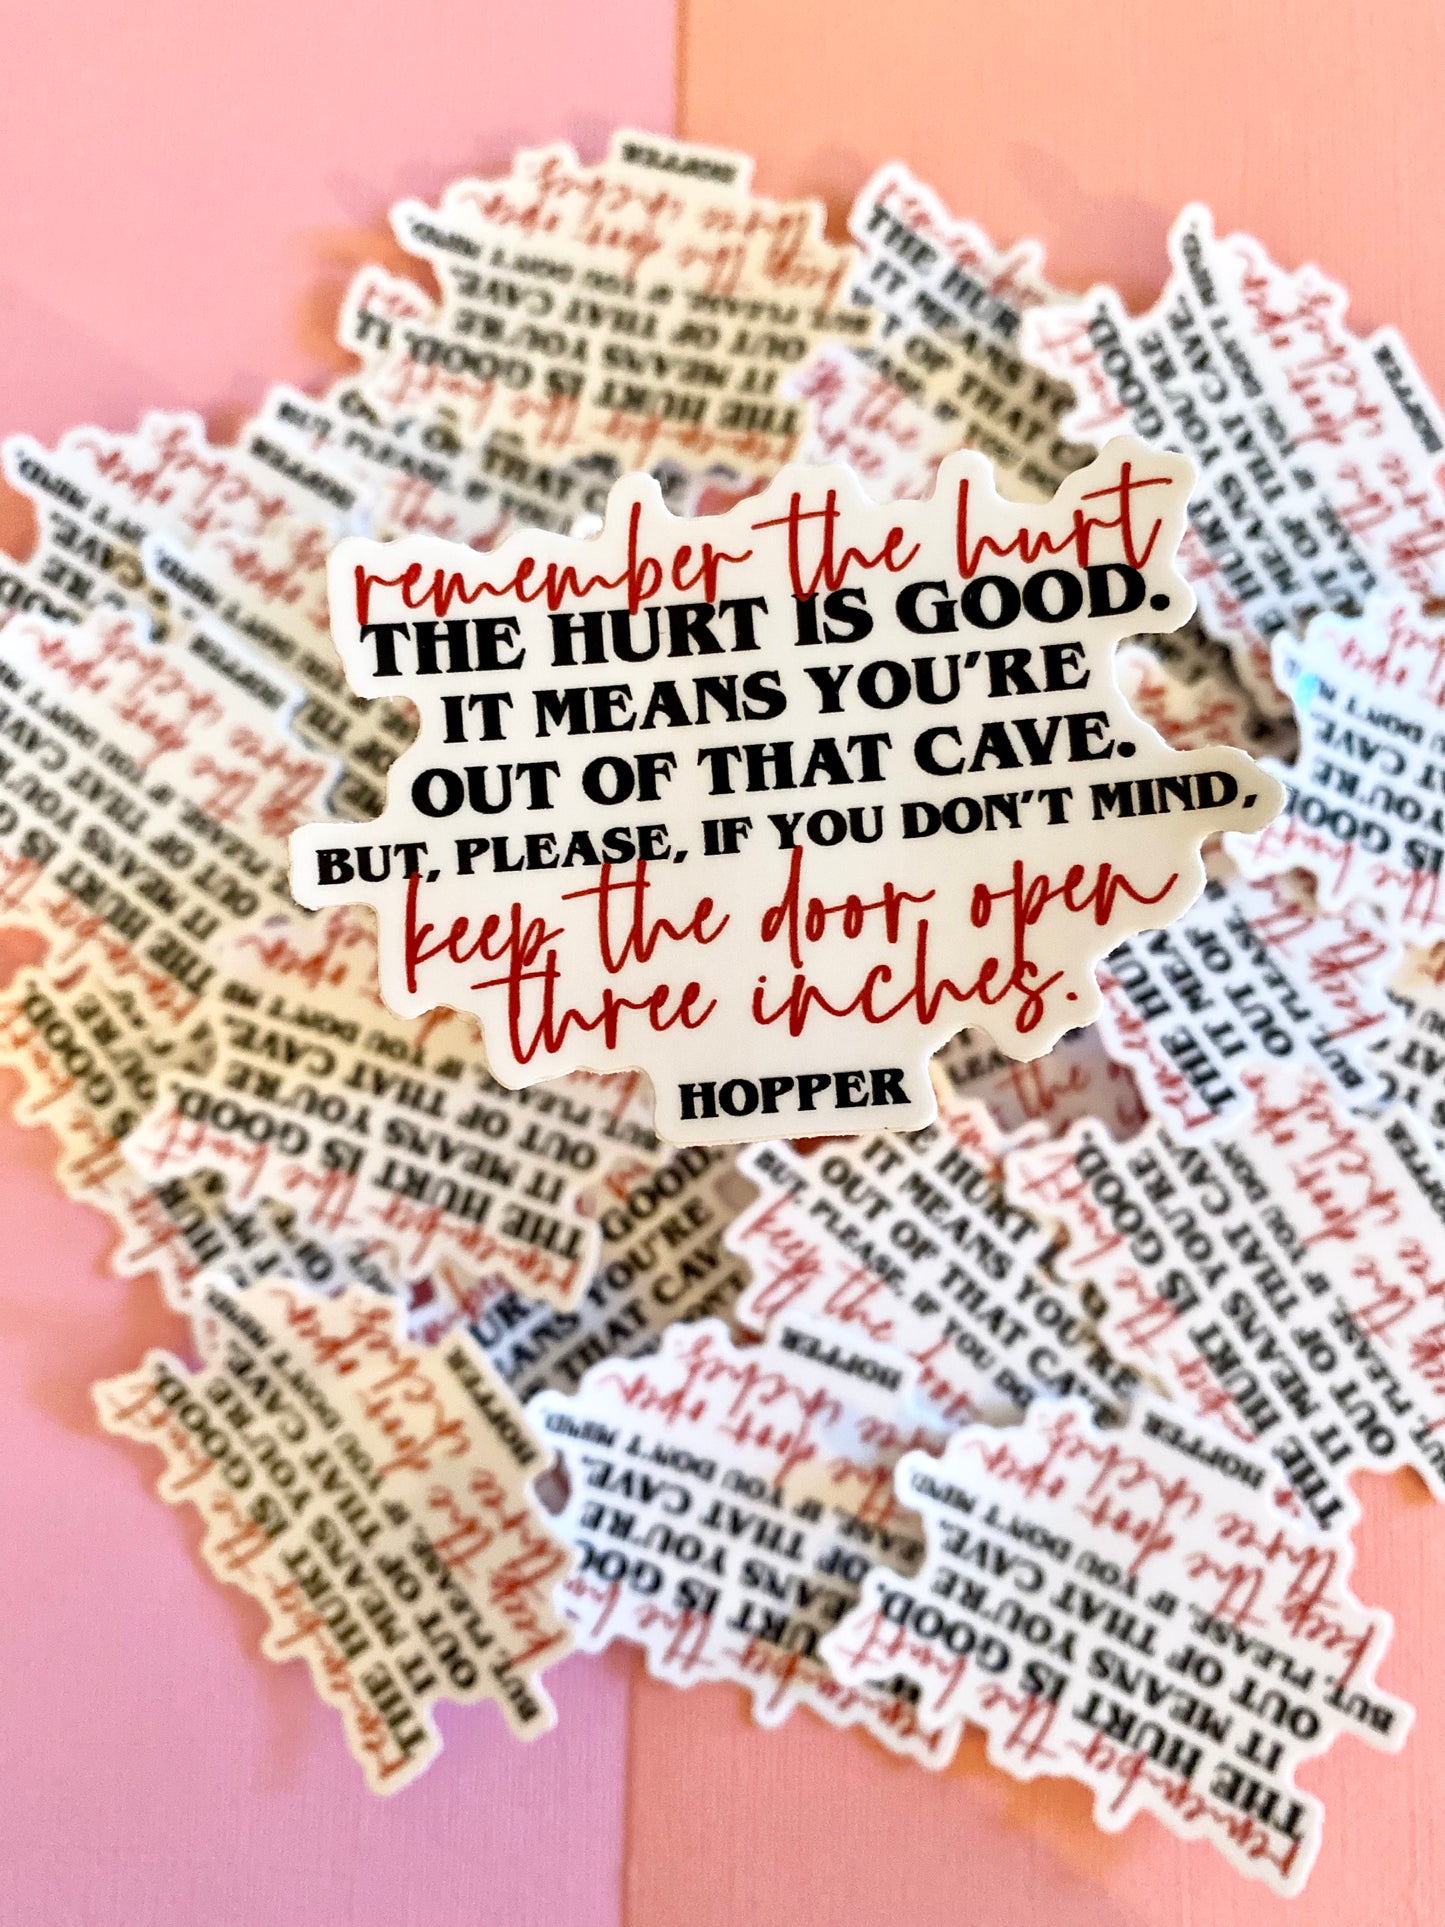 remember the hurt
THE HURT IS GOOD.
IT MEANS YOU'RE
OUT OF THAT CAVE.
BUT, PLEASE, IF YOU DON'T MIND,
keep the door open
three inches.
HOPPER